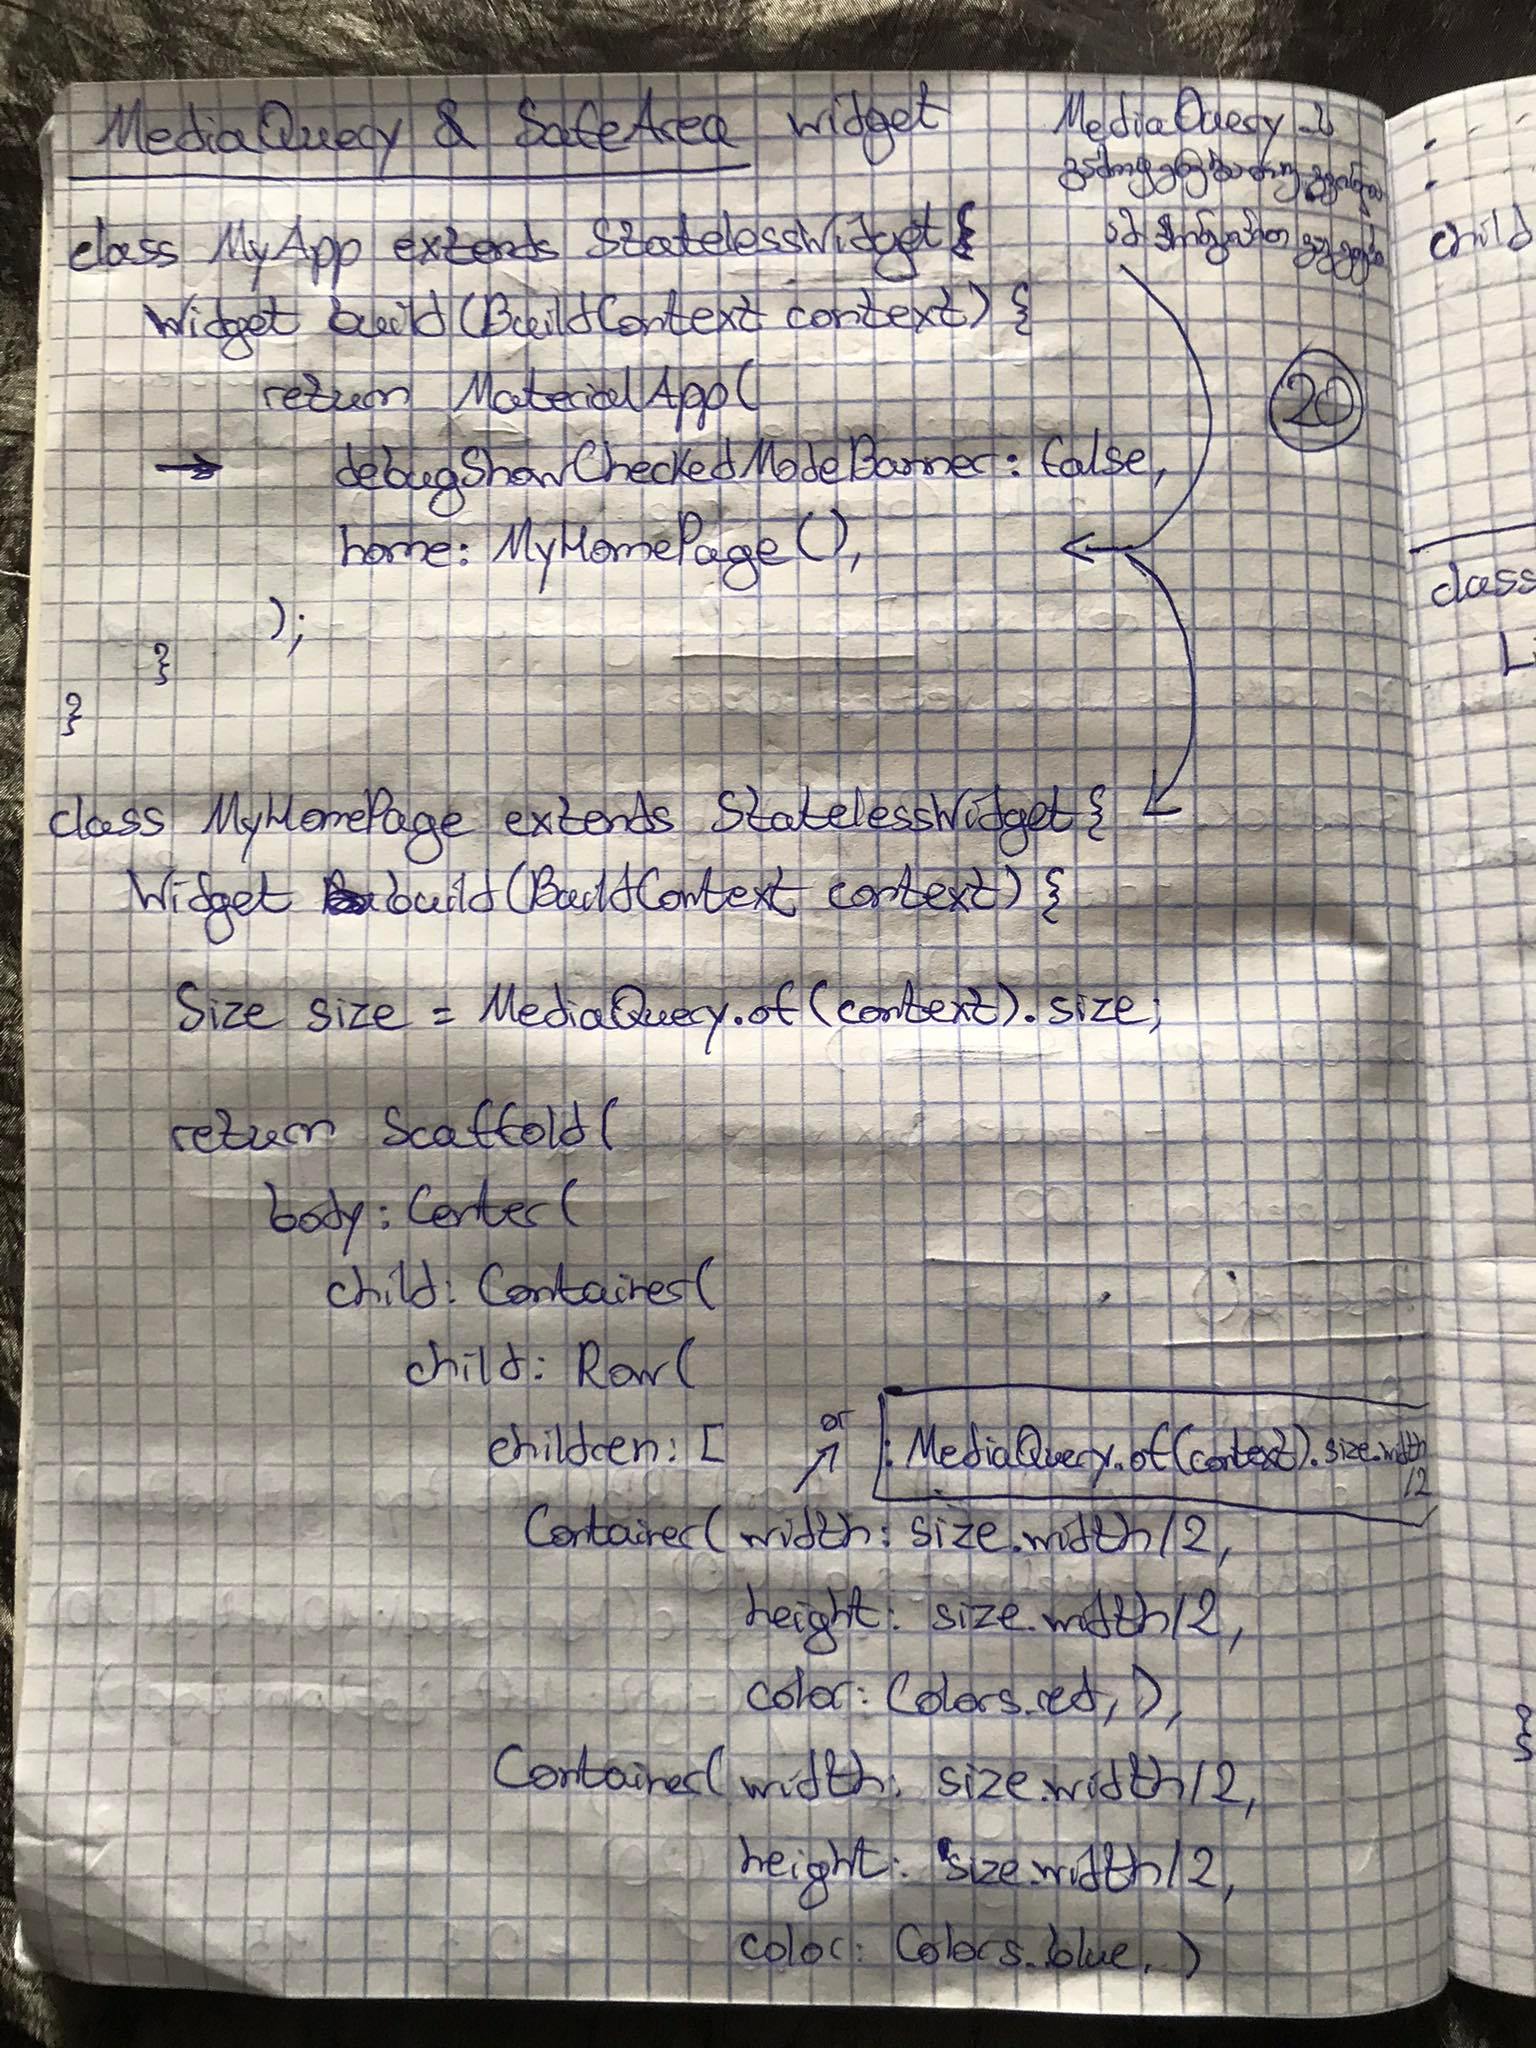 MediaQuery & SafeArea widget
MediaQuery-ს
class MyApp extends StatelessWidget{
Widget build(BuildContext context) {
return MaterialApp(
20
→ debugShowCheckedModeBanner: false,
home: MyHomePage(),
);
}
}
class MyHomePage extends StatelessWidget{
Widget build(BuildContext context) {
Size size = MediaQuery.of(context).size;
return Scaffold(
body: Center(
child: Container(
child: Row(
children: [
or
: MediaQuery.of(context).size.width
/2
Container( width: size.width/2,
height: size.width/2,
color: Colors.red, ),
Container( width: size.width/2,
height: size.width/2,
color: Colors.blue, )
child
class
}